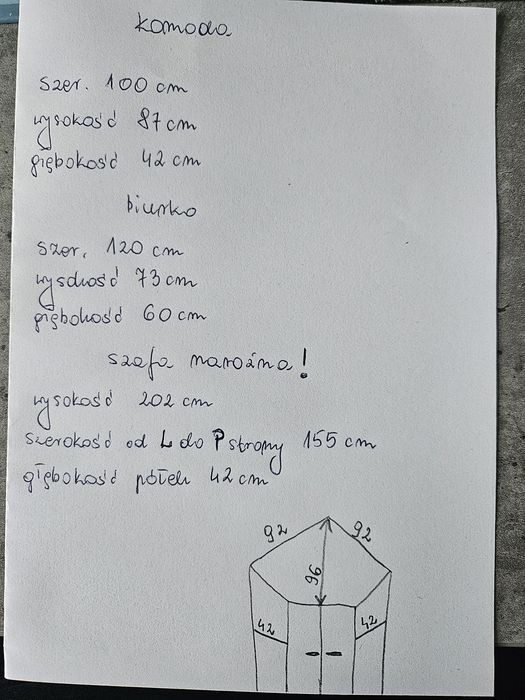 komoda
szer. 100 cm
wysokość 87 cm
głębokość 42 cm
biurko
szer. 120 cm
wysokość 73 cm
głębokość 60 cm
szafa narożna!
wysokość 202 cm
szerokość od L do P strony 155 cm
głębokość półek 42 cm
92 92
96
42 42